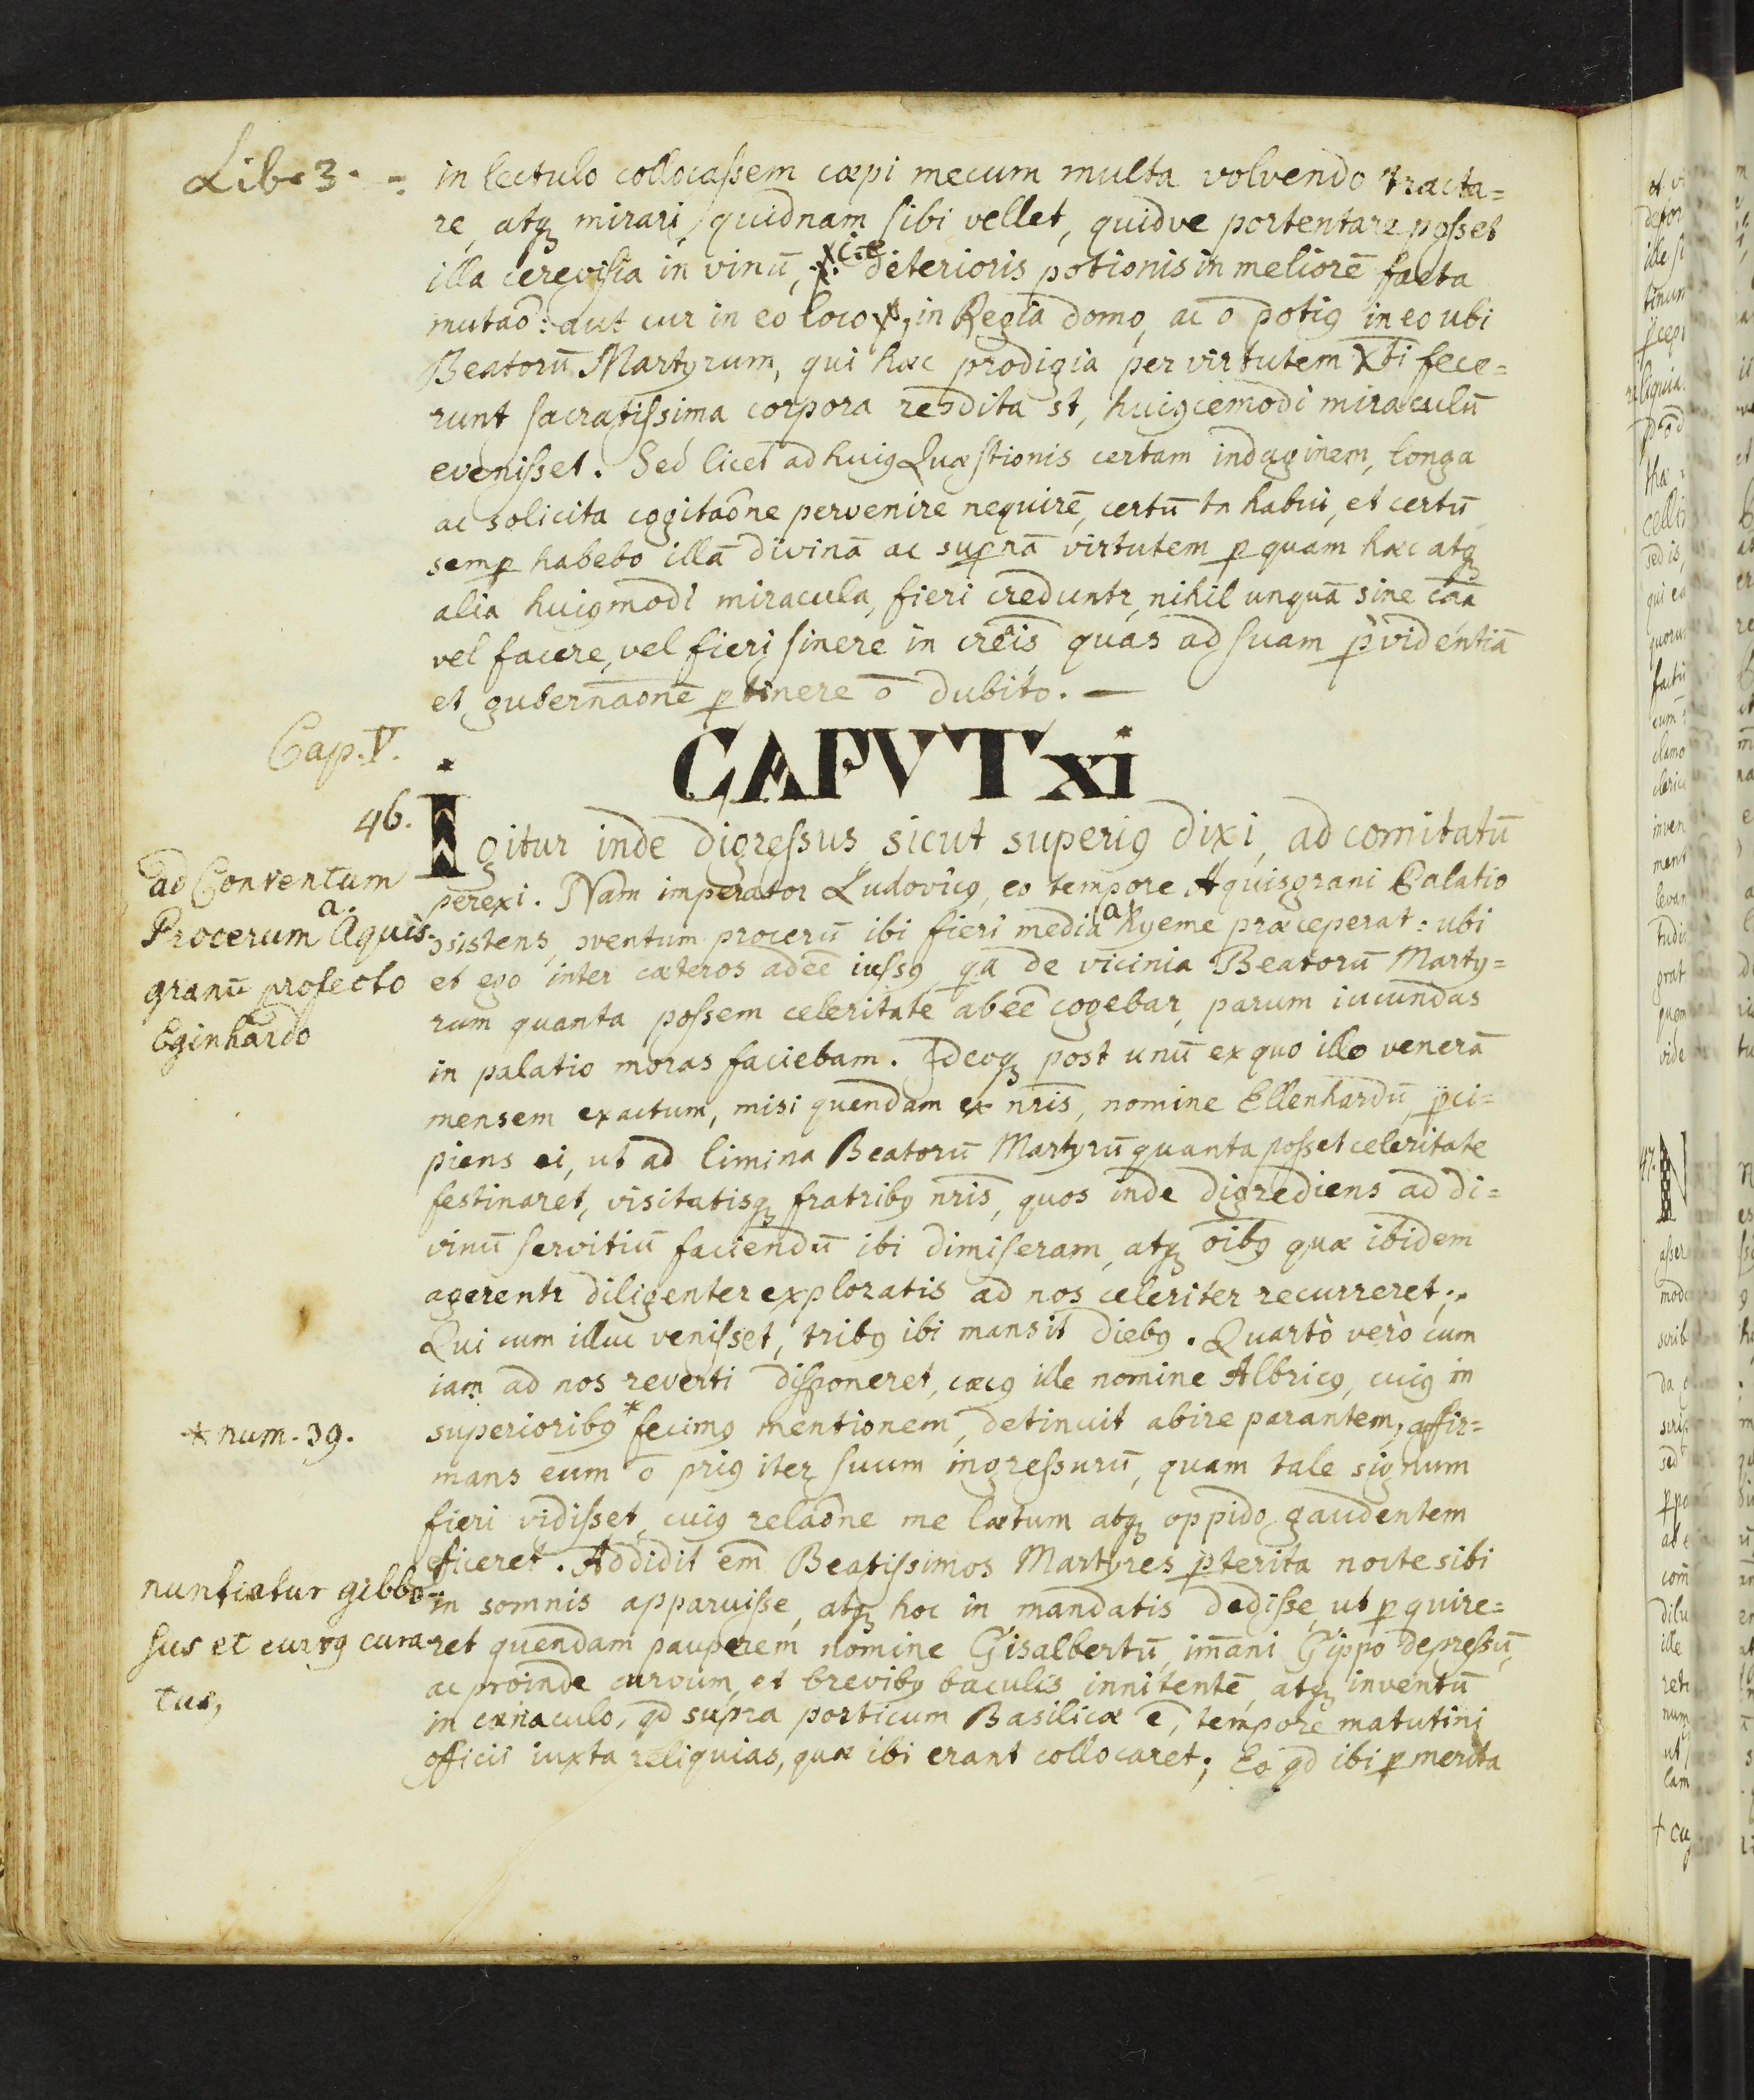 Lib. 3. =
in lectulo collocassem cæpi mecum multa volvendo tracta=
re, atq̨ mirari, quidnam sibi vellet, quidve portentare posset
illa cerevisia in vinū, i.e deterioris potionis in meliorē facta
mutaõ: aut cur in eo loco, in Regia domo, ac ō potiꝰ in eo ubi
Beatorū Martyrum, qui hæc prodigia per virtutem Xti fece=
runt sacratissima corpora recdita st, huiꝰcemodi miraculū
evenisset. Sed licet ad huiꝰ Quæstionis certam indaginem, longa
ac solicita cogitaõne pervenire nequirē, certū tn habui, et certū
semꝑ habebo illā divinā ac suꝑnā virtutem ꝑ quam hæc atq̨
alia huiꝰmodi miracula, fieri creduntr, nihil unquā sine cāā
vel facere, vel fieri sinere in creīs quas ad suam ꝓvidentiā
et gubernāonē ꝑtinere ō dubito. —
Cap. V.
CAPVT xi
46.
Igitur inde digressus sicut superiꝰ dixi, ad comitatū
ad Conventum
perexi. Nam imperator Ludovicꝰ, eo tempore Aquisgrani Palatio
Procerum a. Aquis-
ↄsistens, ↄventum procerū ibi fieri media a hyeme præceperat: ubi
granū profecto
et ego inter cæteros adeē iussꝰ, qa de vicinia Beatorū Marty=
Eginhardo
rum quanta possem celeritate abeē cogebar, parum iucundas
in palatio moras faciebam. Ideoq̨ post unū ex quo illo venerā
mensem exactum, misi quendam ex nr̄is, nomine Ellenhardū, p̄ci=
piens ei, ut ad limina Beatorū Martyrū quanta posset celeritate
festinaret, visitatisq̨ fratribꝰ nr̄is, quos inde digrediens ad di=
vinū servitiū faciendū ibi dimiseram, atq̨ oībꝰ quæ ibidem
agerentr diligenter exploratis ad nos celeriter recurreret;.
Qui cum illuc venisset, tribꝰ ibi mansit diebꝰ. Quartò verò cum
iam ad nos reverti disponeret, cæcꝰ ille nomine Albricꝰ, cuiꝰ in
* num. 39.
superioribꝰ* fecimꝰ mentionem, detinuit abire parantem, affir=
mans eum ō priꝰ iter suum ingressurū, quam tale signum
fieri vidisset, cuiꝰ relaõne me lætum atq̨ oppido gaudentem
efficeret. Addidit em̄ Beatissimos Martyres p̄terita nocte sibi
nuntiatur gibbo-
in somnis apparuisse, atq̨ hoc in mandatis dedisse, ut ꝑquire=
sus et curvꝰ cura-
ret quendam pauperem nomine Gisalbertū, im̄ani Gippo depressū,
tus,
ac proinde curvum, et brevibꝰ baculis innitentē, atq̨ inventū
in cænaculo, qd supra porticum Basilicæ ē, tempore matutini
officii iuxta reliquias, quæ ibi erant collocaret; Eo qd ibi ꝑ merita